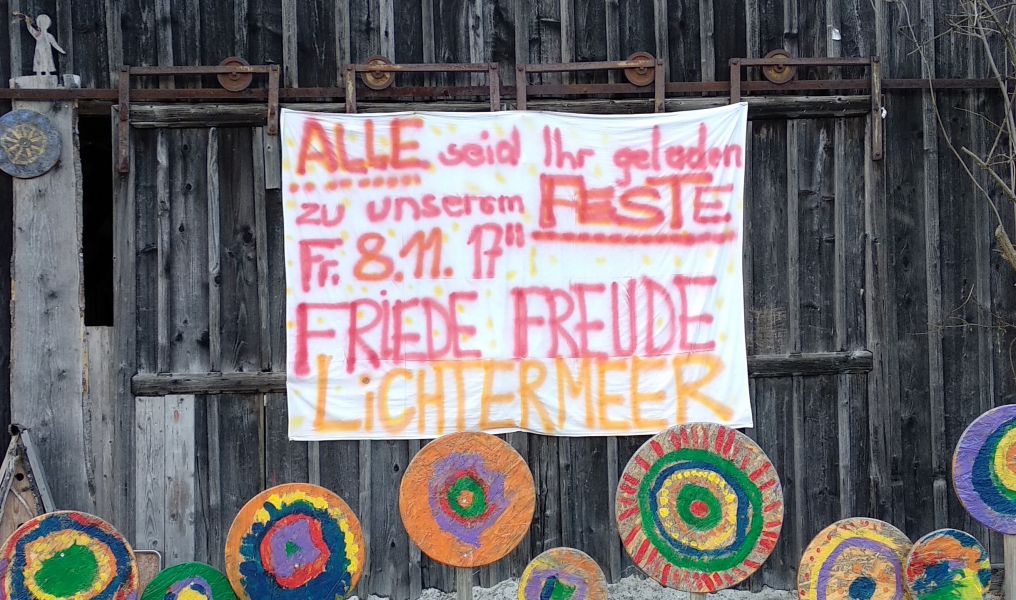 ALLE seid Ihr geladen
zu unserem FESTE
Fr. 8.11. 17"
FRIEDE FREUDE
LiCHTERMEER